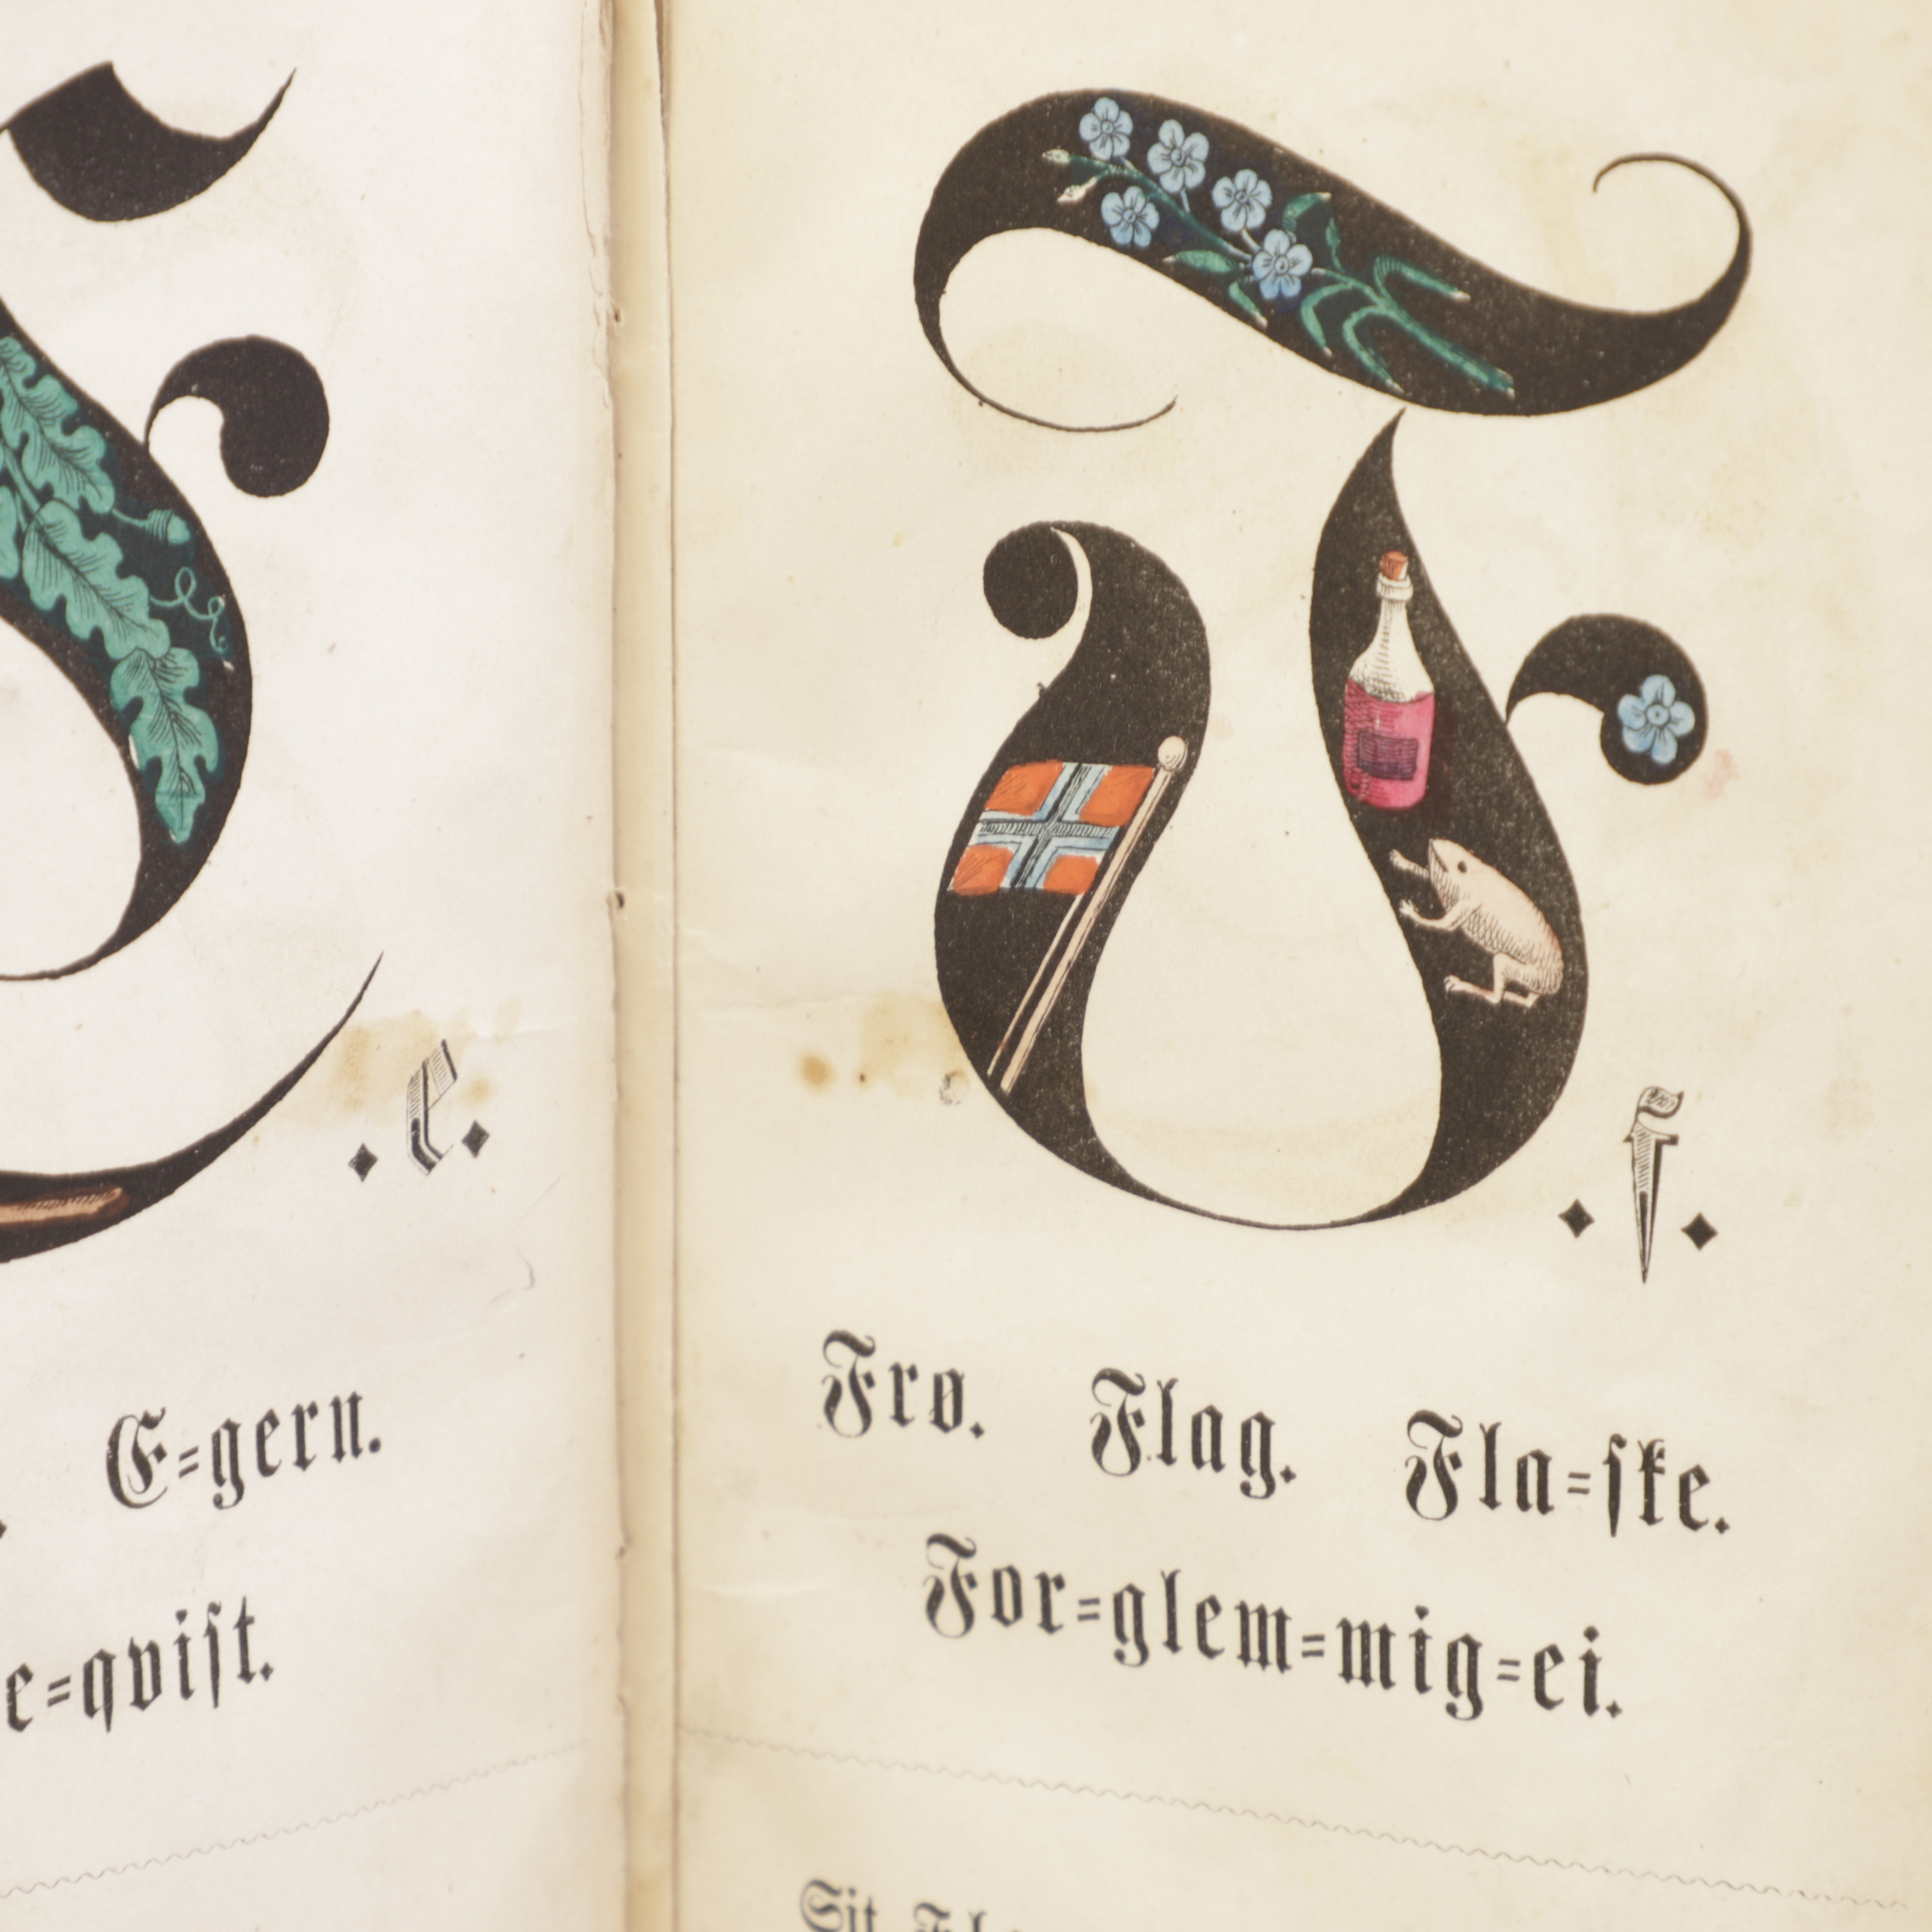 E
e.
E=gern.
e=qvist.
F
f.
Frø. Flag. Fla=ske.
For=glem=mig=ei.
Sit